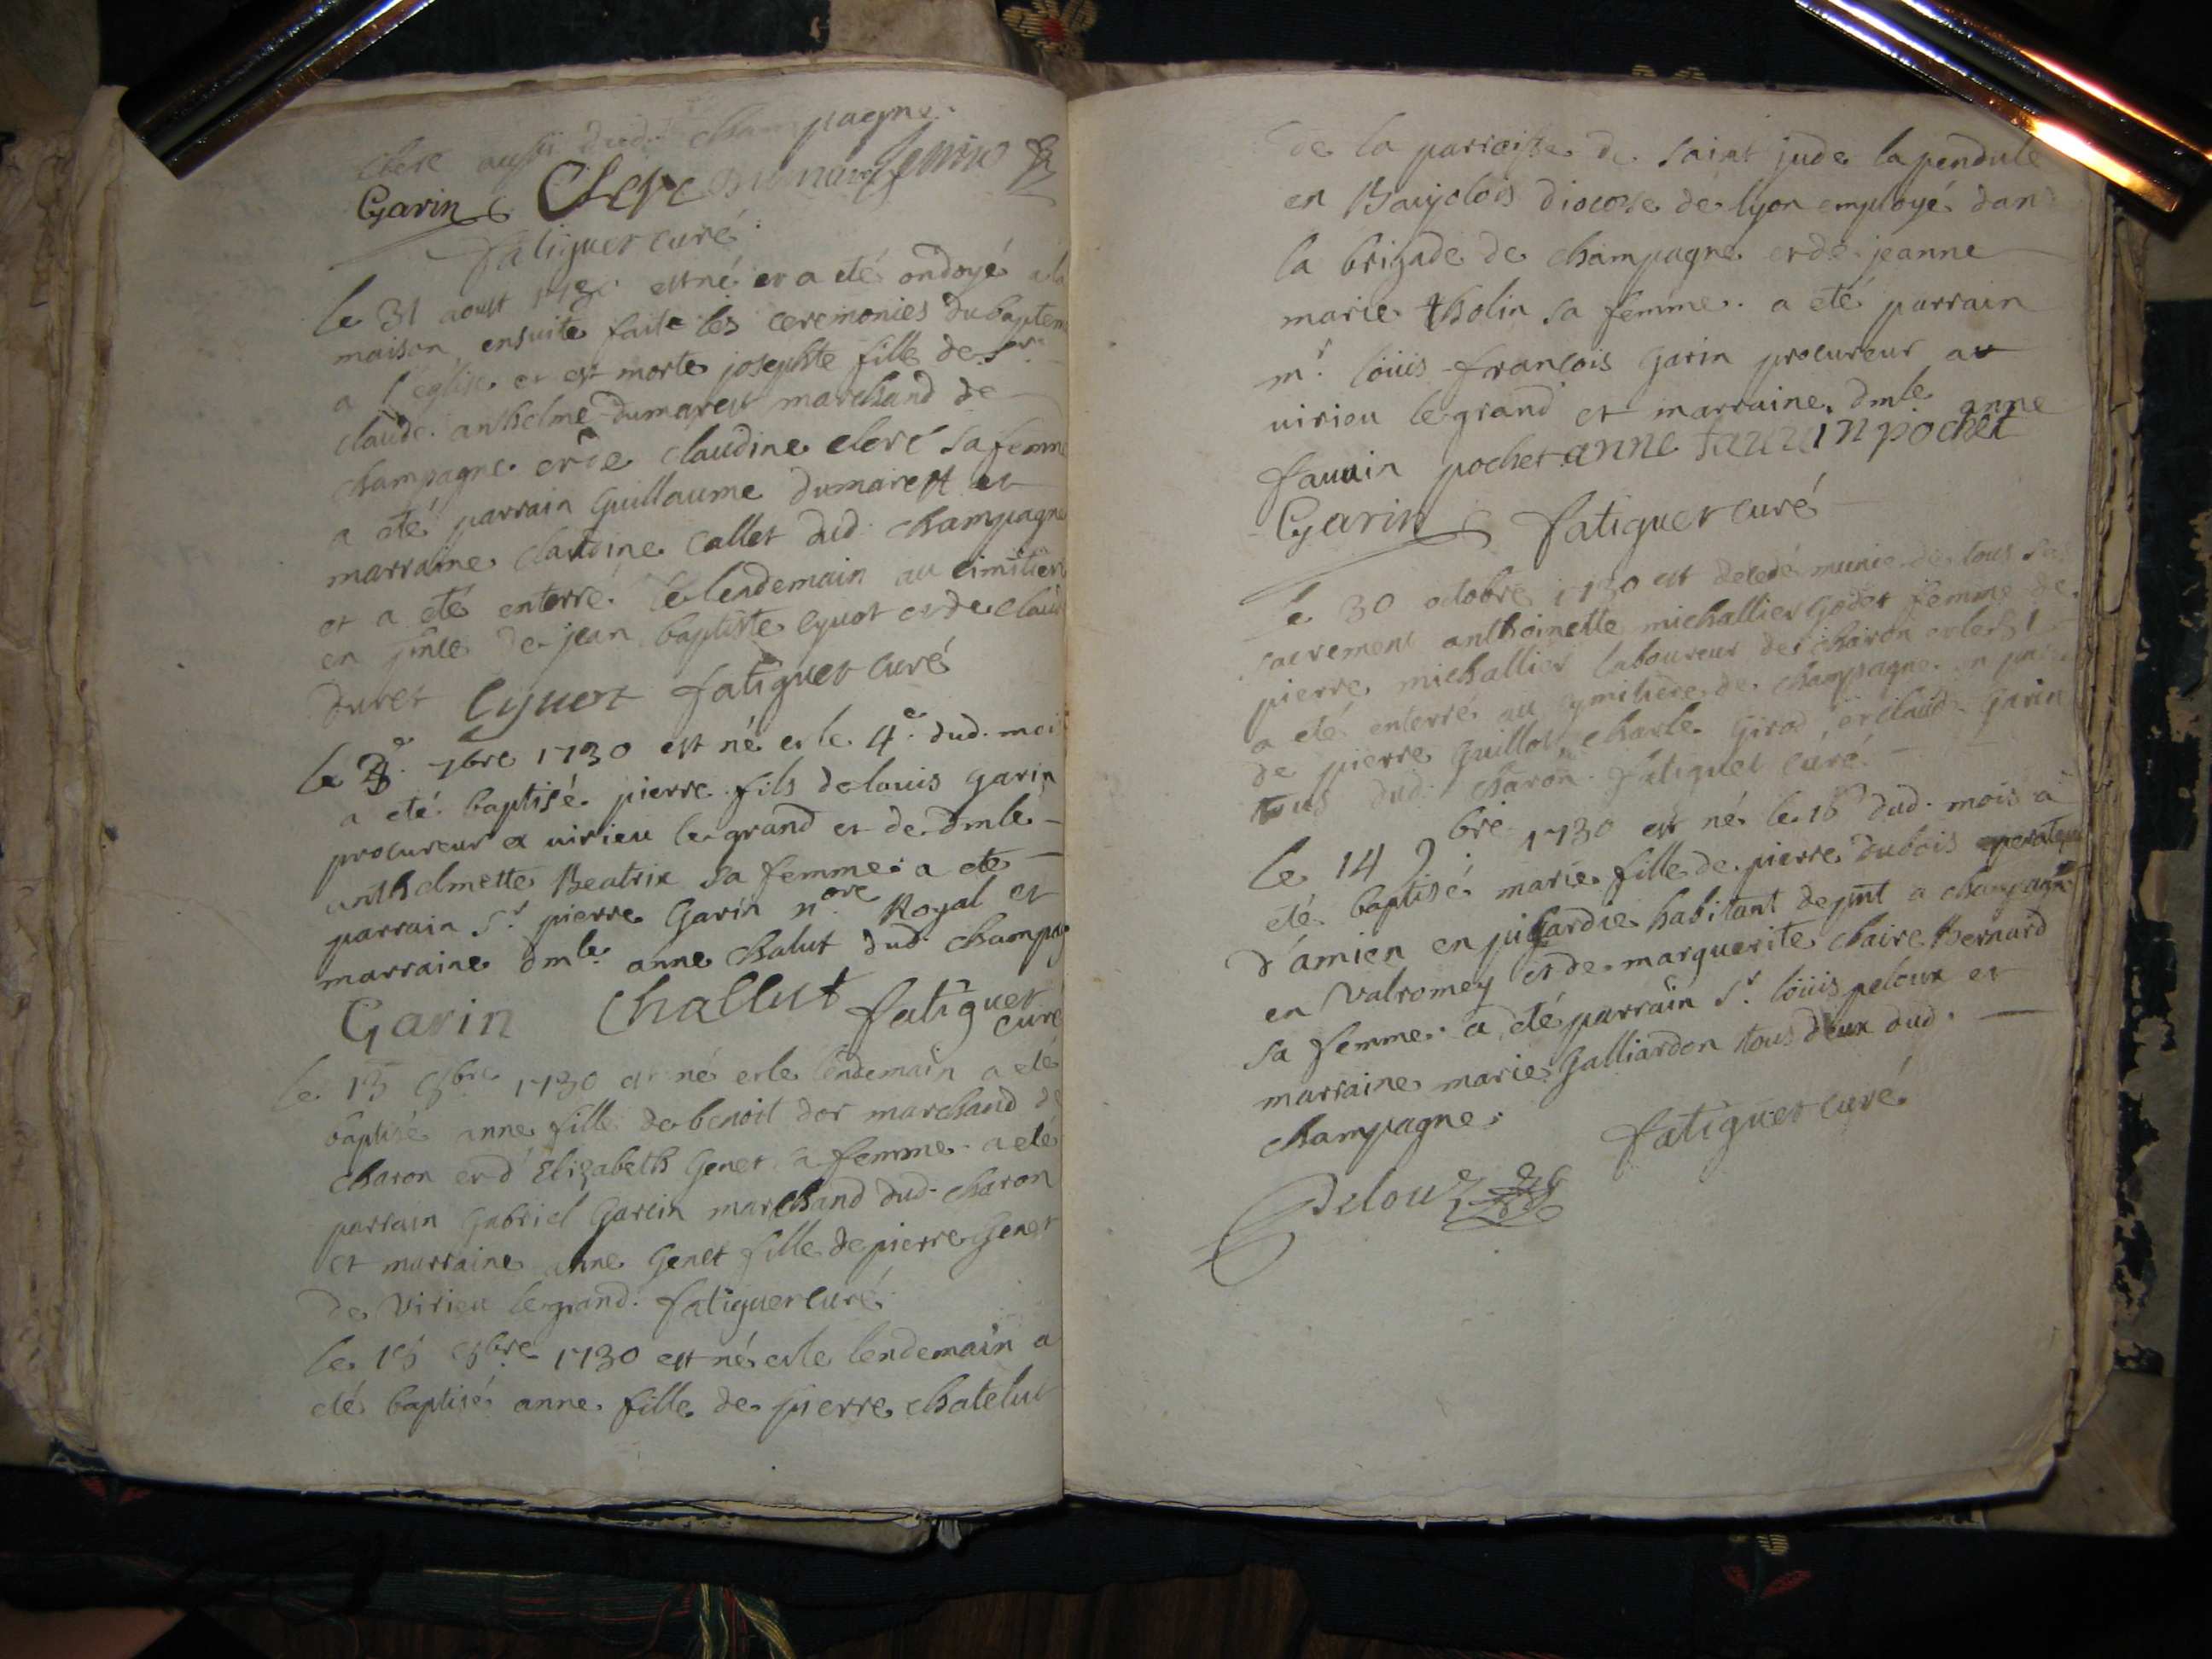 Clerc aussi dud. Champagne.
Garin Clerc
fatiguet curé.
le 31 aoust 1730 est né et a eté ondoyé a la
maison ensuite faite les ceremonies du baptem
a l'eglise et est morte josephte fille de Sr.
claude anthelme dumarest marchand de
champagne et de claudine clerc sa femme
a eté parrain Guillaume dumarest et
marraine claudine Callet dud. champagne
et a eté enterré le lendemain au cimitiere
en pnce de jean baptiste Cyuot et de claud
duret Cyuot fatiguet curé
le 3e. 7bre 1730 est né et le 4e. dud. moi
a eté baptisé pierre fils de louis garin
procureur a virieu le grand et de dmle
anthelmette Beatrix sa femme. a eté
parrain Sr. pierre Garin nore Royal et
marraine dmle. anne Chalut dud. champag
Garin Challut fatiguet
curé
le 13 8bre 1730 est né et le lendemain a eté
baptisé anne fille de benoit dor marchand de
charon et d'Elizabeth Genet sa femme. a eté
parrain Gabriel Garcin marchand dud. charon
et marraine anne Genet fille de pierre Genet
de virieu le grand. fatiguet curé
le 15 8bre 1730 est né et le lendemain a
eté baptisé anne fille de pierre chatelut
de la parroisse de saint jude la pendule
en Baujolois diocese de lyon employé dan
la brigade de champagne et de jeanne
marie tholin sa femme. a eté parrain
mr. loüis françois Garin procureur au
virieu le grand et marraine dmle anne
fauuin pochet anne fauuin pochet
Garin fatiguet curé
le 30 octobre 1730 est decedé munie de tous sas
sacrement anthoinette michallier Godet femme de
pierre michallier laboureur de charon et le 31
a eté enterré au cymitiere de champagne en
de pierre Guillot, charle Girod et claude Garin
tous dud. charon. fatiguet curé
le 14 9bre. 1730 est né le 16 dud. mois a
eté baptisé marie fille de pierre dubois operateur
d'amien en picardie habitant de pnt a champagne
en valromey et de marguerite claire Bernard
sa femme. a eté parrain Sr. loüis peloux et
marraine marie Galliardon tous deux dud.
champagne.
fatiguet curé
Peloux